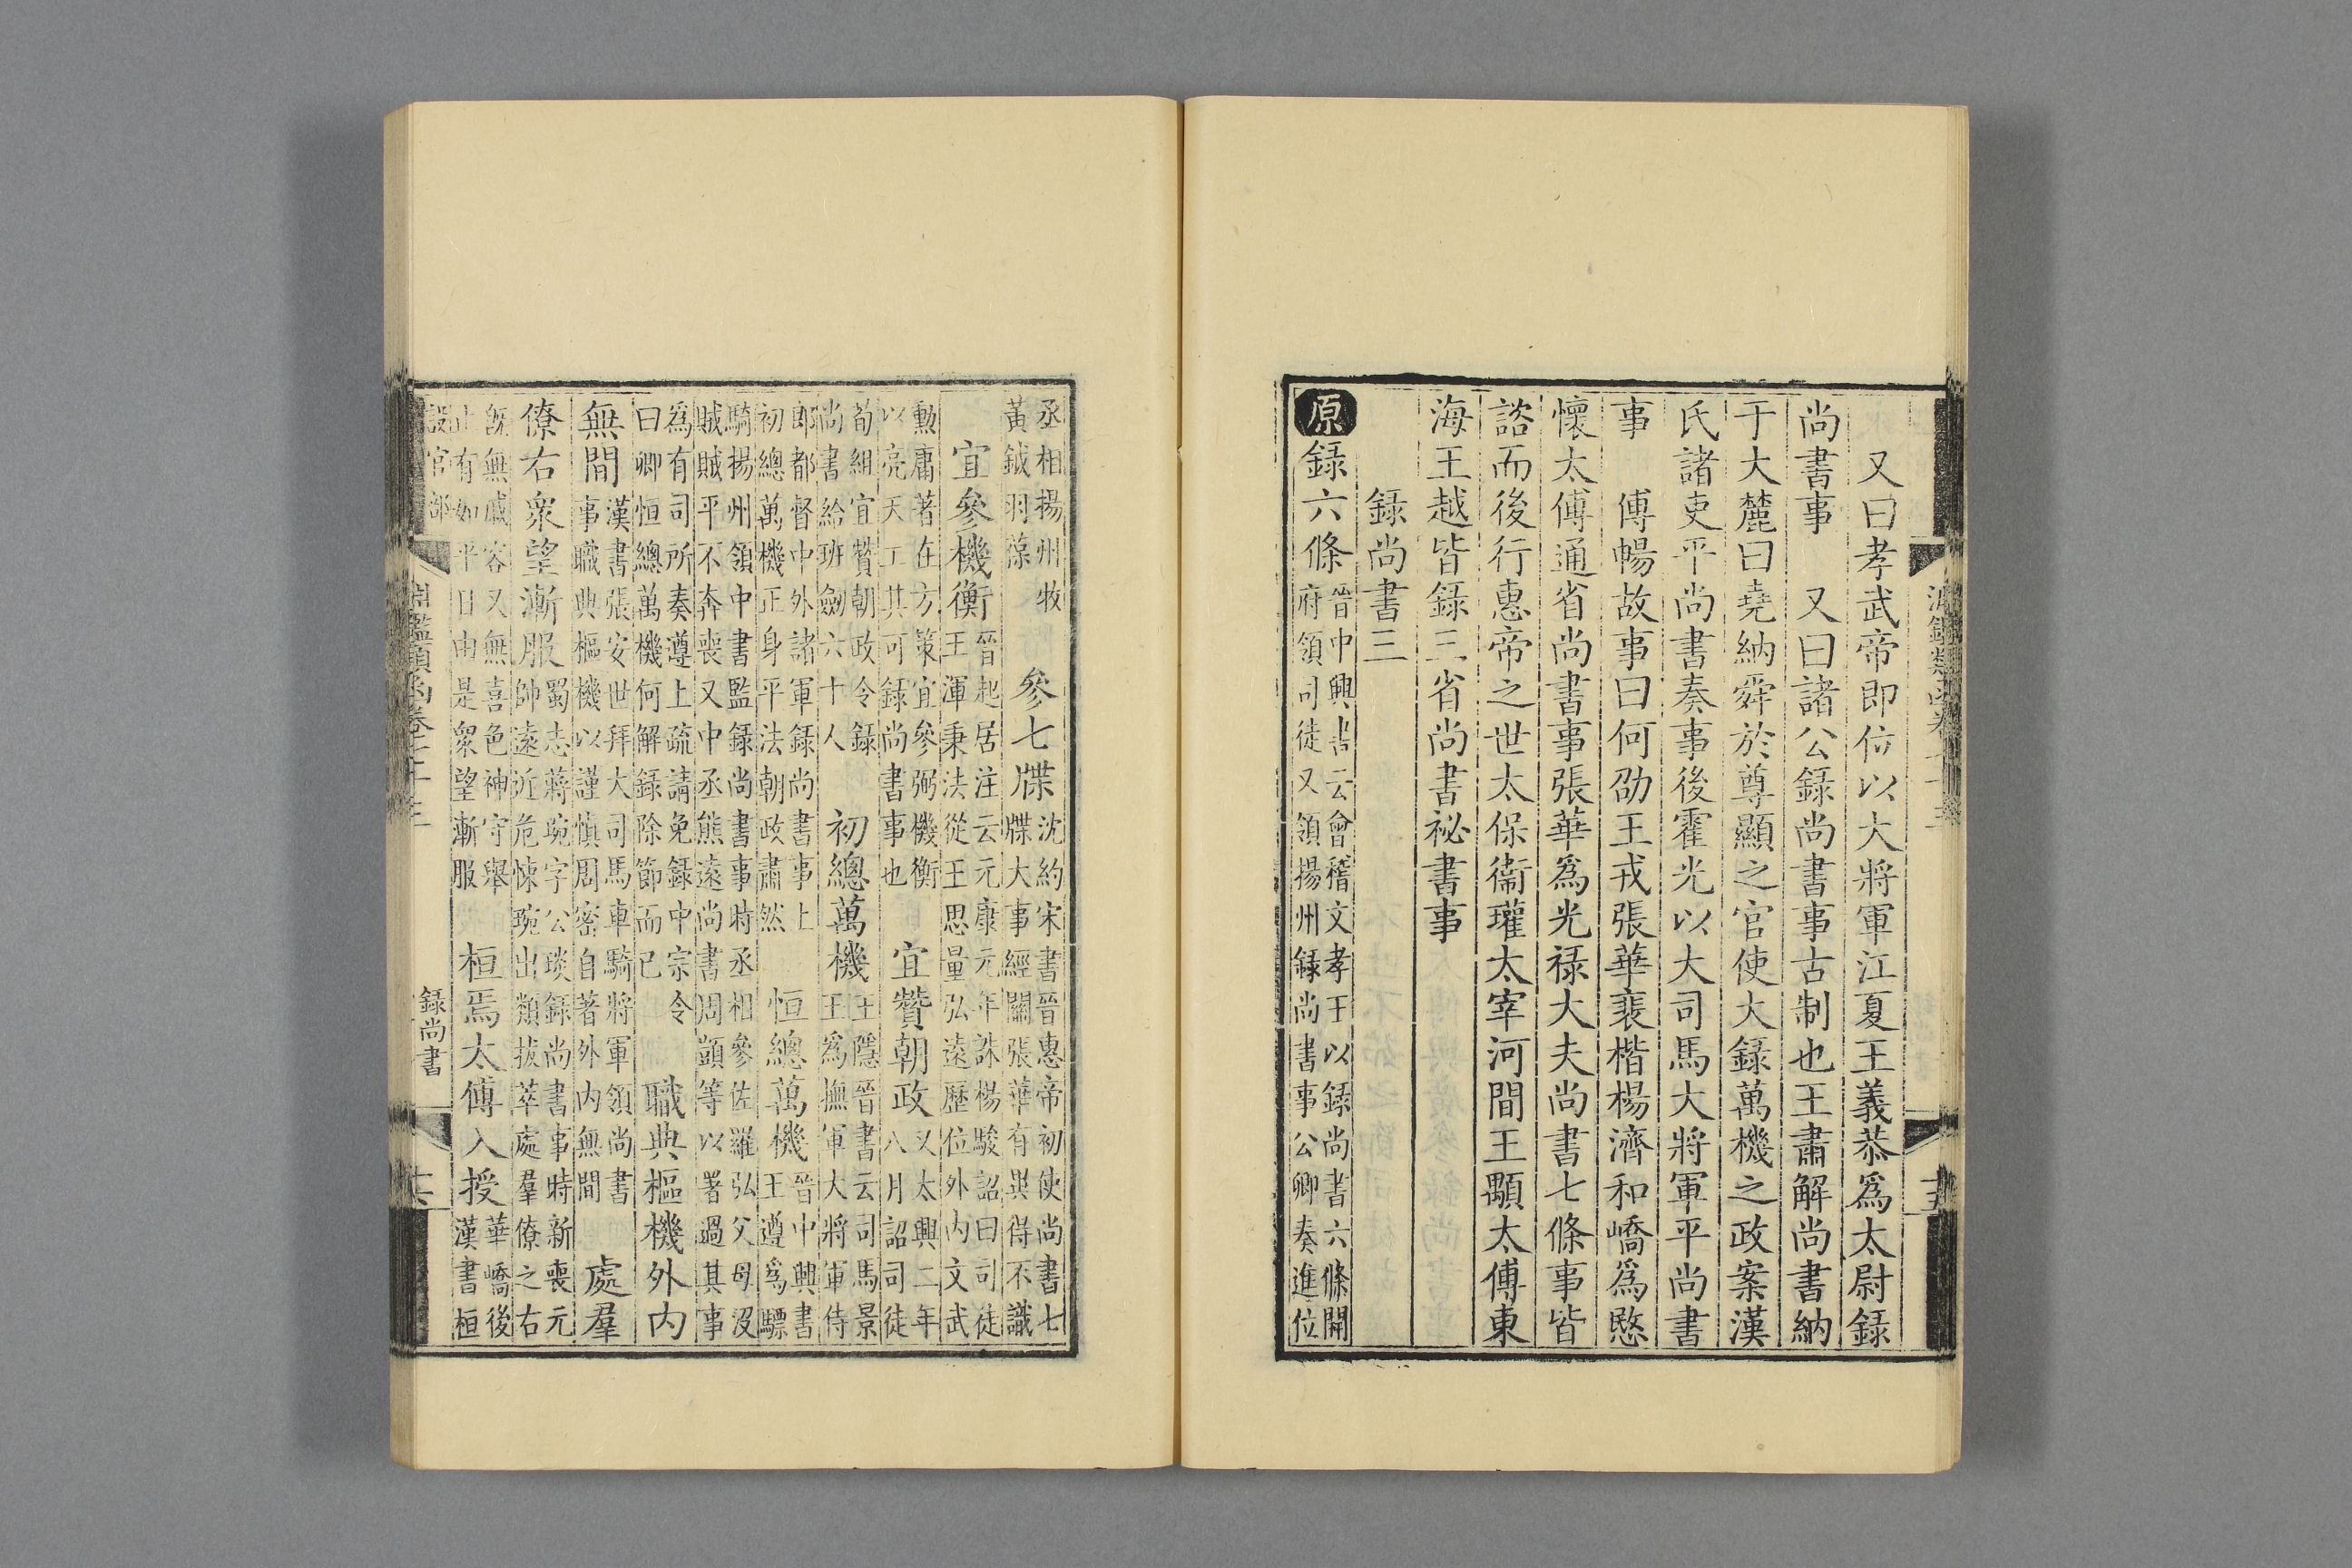 又曰孝武帝即位以大將軍江夏王義恭爲太尉錄
尚書事　又曰諸公錄尚書事古制也王肅解尚書納
于大麓曰堯納舜於尊顯之官使大錄萬機之政案漢
氏諸吏平尚書奏事後霍光以大司馬大將軍平尚書
事　傅暢故事曰何劭王戎張華裴楷楊濟和嶠爲愍
懷太傅通省尚書事張華爲光祿大夫尚書七條事皆
諮而後行惠帝之世太保衞瓘太宰河間王顒太傅東
海王越皆錄三省尚書祕書事
錄尚書三
原錄六條晉中興書云會稽文孝王以錄尚書六條開
府領司徒又領揚州錄尚書事公卿奏進位
丞相揚州牧
黃鉞羽葆
參七牒沈約宋書晉惠帝初使尚書七
牒大事經關張華有與得不識
宜參機衡晉起居注云元康元年誅楊駿詔曰司徒
王渾秉法從王思量弘遠歷位外內文武
勳庸著在方策宜參弼機衡
以亮天工其可錄尚書事也
宜贊朝政又太興二年
八月詔司徒
荀組宜贊朝政令錄
尚書給班劒六十人
初總萬機王隱晉書云司馬景
王爲撫軍大將軍侍
郎都督中外諸軍錄尚書事上
初總萬機正身平法朝政肅然
恒總萬機晉中興書
王遵爲驃
騎揚州領中書監錄尚書事時丞相參佐羅弘父母沒
賊賊平不奔喪又中丞熊遠尚書周顗等以署過其事
爲有司所奏遵上疏請免錄中宗令
曰卿恒總萬機何解錄除節而已
職典樞機外內
無間漢書張安世拜大司馬車騎將軍領尚書
事職典樞機以謹慎周密自著外內無間
處羣
僚右衆望漸服蜀志蔣琬字公琰錄尚書事時新喪元
帥遠近危悚琬出類拔萃處羣僚之右
旣無戚容又無喜色神守舉
止有如平日由是衆望漸服
桓焉太傅入授華嶠後
漢書桓
設官部
淵鑑類函卷七十三
錄尚書